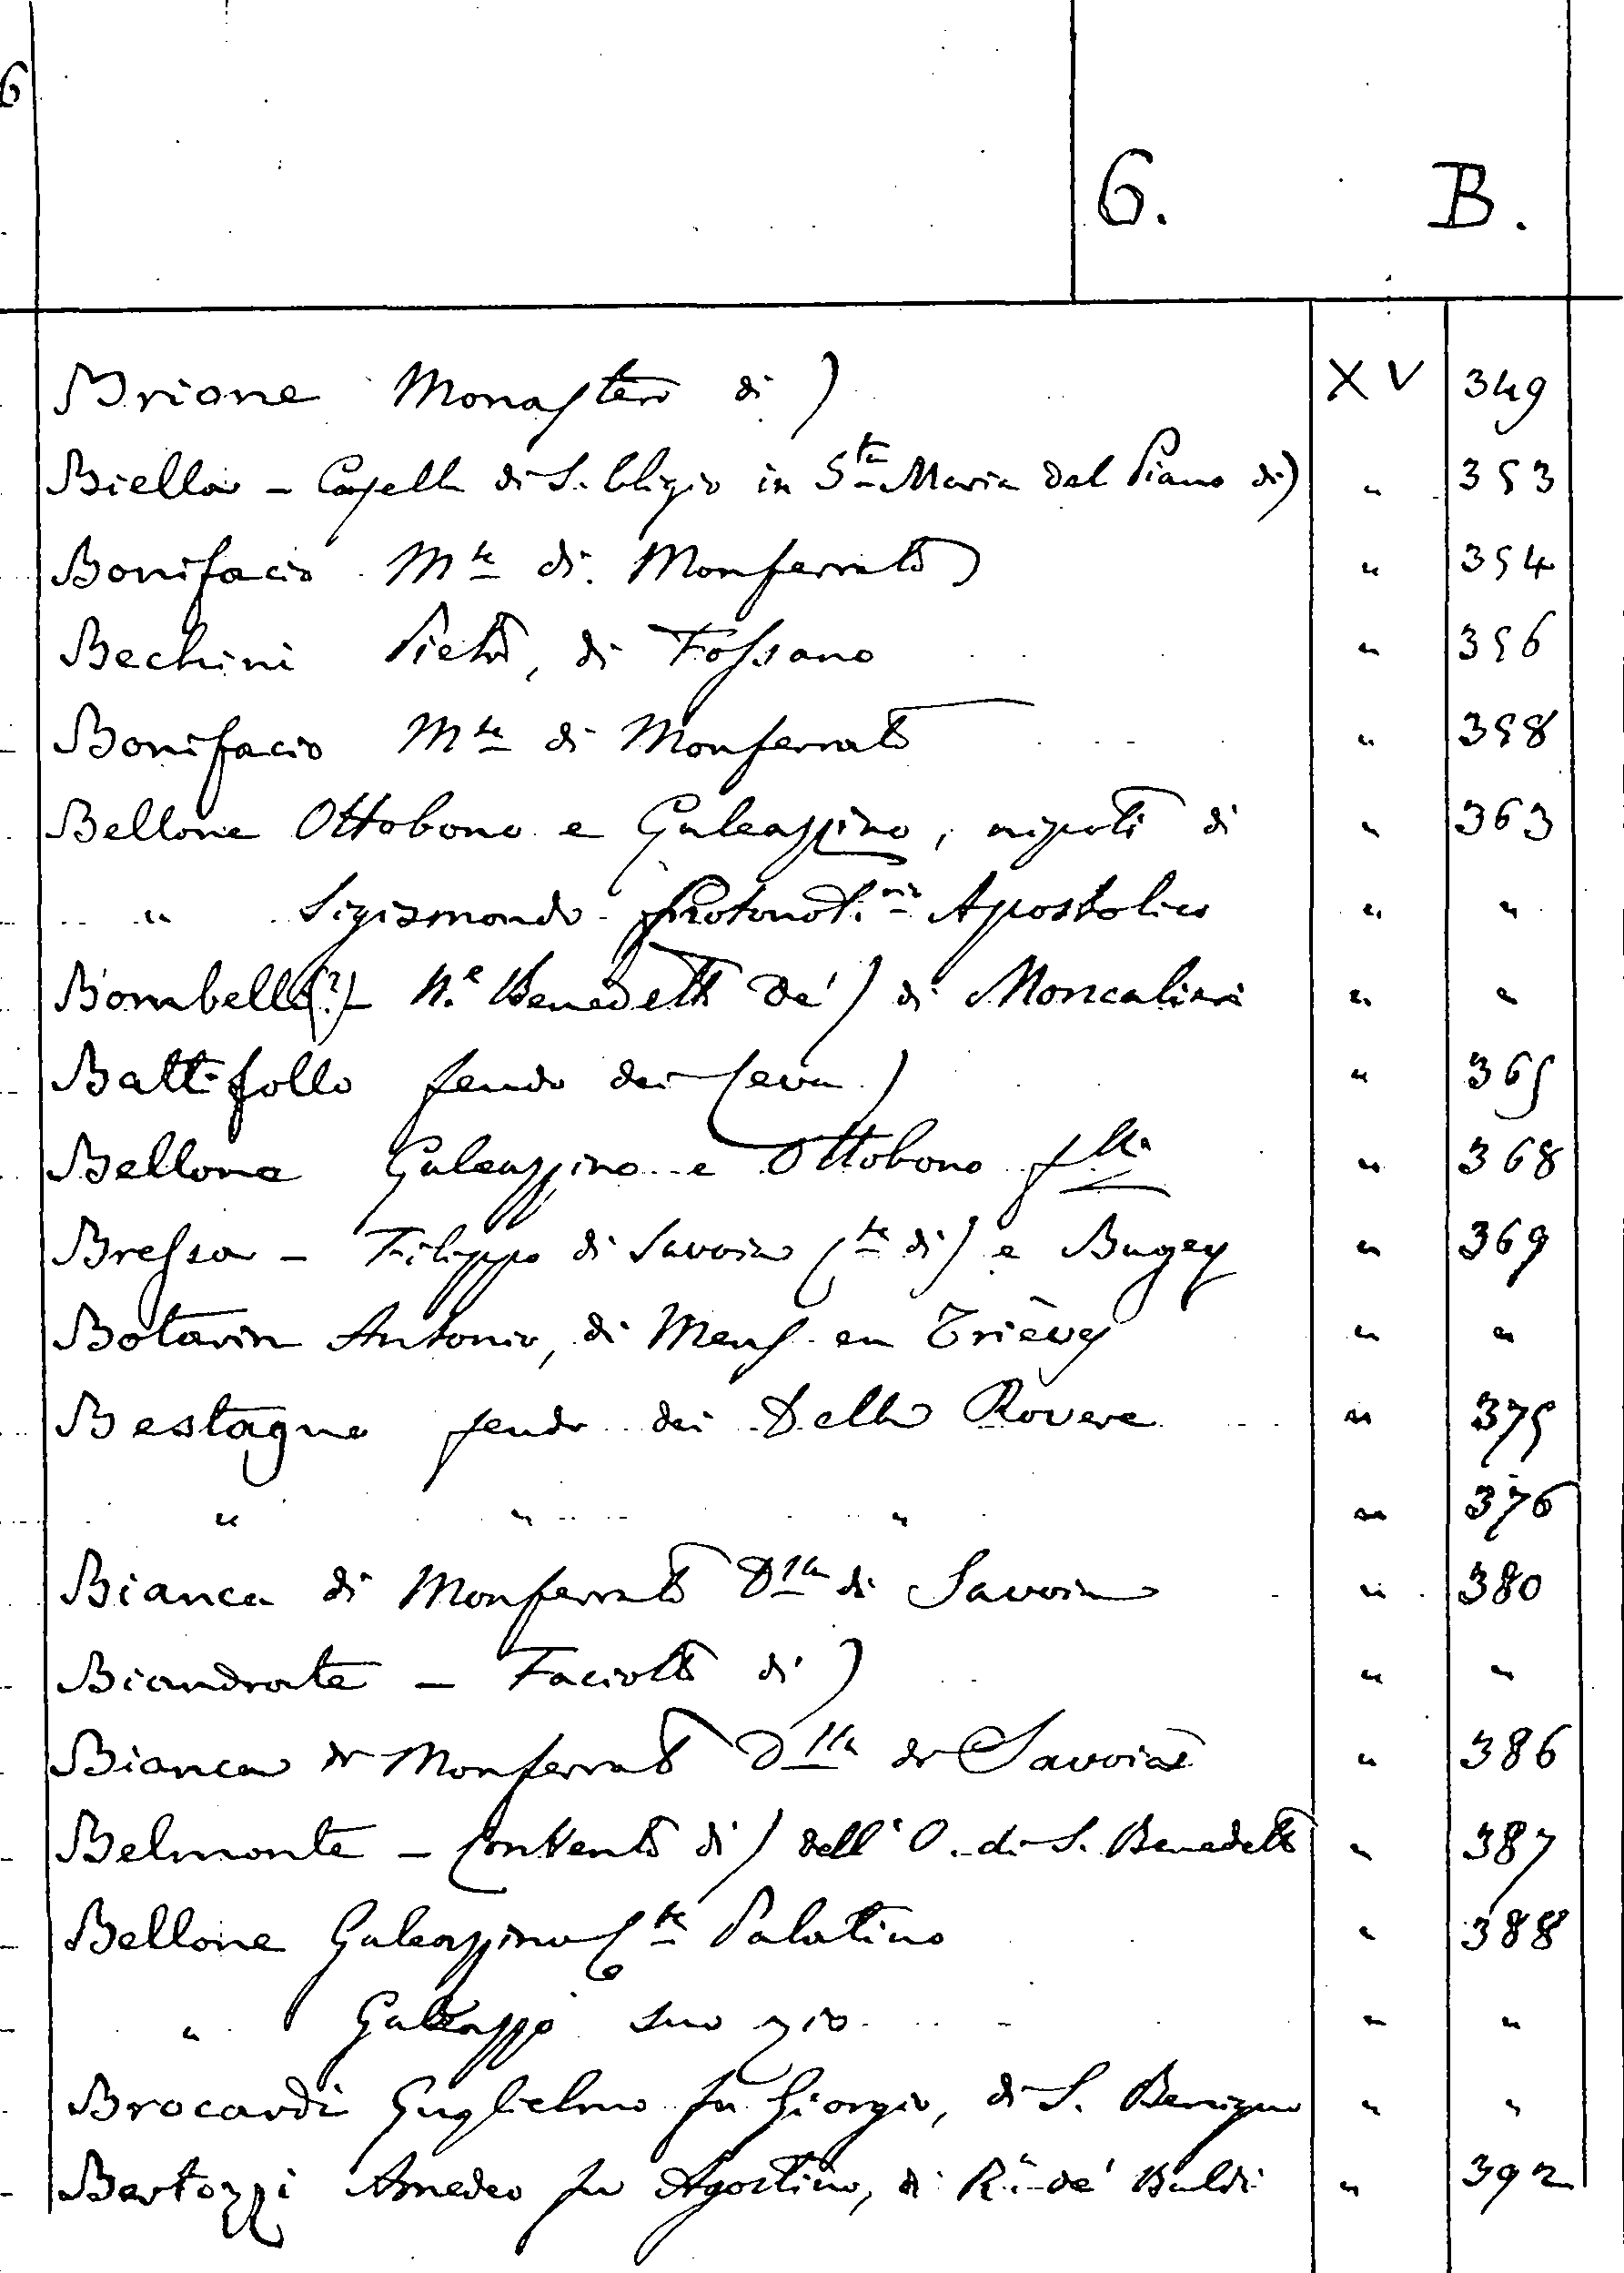 6
6. B.
Brione Monastero di) XV 349
Biella - Capella di S. Eligio in Sta Maria del Piano di) " 353
Bonifacio Mse di Monferrato) " 354
Bechini Pietro, di Fossano " 356
Bonifacio Mse di Monferrato " 358
Bellone Ottobono e Galeazzino, nipoti di " 363
" Sigismondo Protonotrio Apostolico " "
Bombello(?) - N.e Benedetto de') di Moncalieri " "
Battifollo feudo dei Ceva) " 365
Bellone Galeazzino e Ottobono flli " 368
Bressa - Filippo di Savoia Cte di) e Bugey " 369
Botarin Antonio, di Mens en Trièves " "
Bestagno feudo dei Della Rovere " 375
" " " " 376
Bianca di Monferrato Dssa di Savoia " 380
Biandrate - Faciotto di) " "
Bianca di Monferrato Dssa di Savoia " 386
Belmonte - Convento di) dell' O. di S. Benedetto " 387
Bellone Galeazzino Cte Palatino " 388
" Galeazzo suo zio " "
Brocardi Guglielmo fu Giorgio, di S. Benigno " "
Bertozzi Amedeo fu Agostino, di Ra de' Baldi " 392